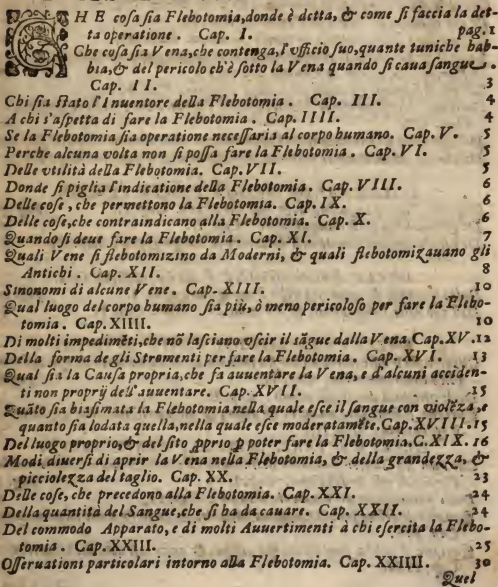 CHE coſa ſia Flebotomia, donde è detta, & come ſi faccia la det-
ta operatione. Cap. I. pag. 1
Che coſa ſia Vena, che contenga, l'officio ſuo, quante tuniche hab-
bia, & del pericolo ch'è ſotto la Vena quando ſi caua ſangue.
Cap. II. 3
Chi ſia ſtato l'Inuentore della Flebotomia. Cap. III. 4
A chi s'aſpetta di fare la Flebotomia. Cap. IIII. 4
Se la Flebotomia ſia operatione neceſſaria al corpo humano. Cap. V. 5
Perche alcuna volta non ſi poſſa fare la Flebotomia. Cap. VI. 5
Delle vtilità della Flebotomia. Cap. VII. 5
Donde ſi piglia l'indicatione della Flebotomia. Cap. VIII. 6
Delle coſe, che permettono la Flebotomia. Cap. IX. 6
Delle coſe, che contraindicano alla Flebotomia. Cap. X. 6
Quando ſi deue fare la Flebotomia. Cap. XI. 7
Quali Vene ſi flebotomizino da Moderni, & quali flebotomizauano gli
Antichi. Cap. XII. 8
Sinonomi di alcune Vene. Cap. XIII. 10
Qual luogo del corpo humano ſia più, ò meno pericoloſo per fare la Flebo-
tomia. Cap. XIIII. 10
Di molti impedimēti, che nō laſciano vſcir il ſāgue dalla Vena. Cap. XV. 12
Della forma de gli Stromenti per fare la Flebotomia. Cap. XVI. 13
Qual ſia la Cauſa propria, che fa auuentare la Vena, e d'alcuni acciden-
ti non proprij dell'auuentare. Cap. XVII. 15
Quāto ſia biaſimata la Flebotomia nella quale eſce il ſangue con violēza, e
quanto ſia lodata quella, nella quale eſce moderatamēte. Cap. XVIII. 15
Del luogo proprio, & del ſito p̱prio p̱ poter fare la Flebotomia. C. XIX. 16
Modi diuerſi di aprir la Vena nella Flebotomia, & della grandezza, &
picciolezza del taglio. Cap. XX. 23
Delle coſe, che precedono alla Flebotomia. Cap. XXI. 24
Della quantità del Sangue, che ſi ha da cauare. Cap. XXII. 24
Del commodo Apparato, e di molti Auuertimenti à chi eſercita la Flebo-
tomia. Cap. XXIII. 25
Oſſeruationi particolari intorno alla Flebotomia. Cap. XXIIII. 30
Quel